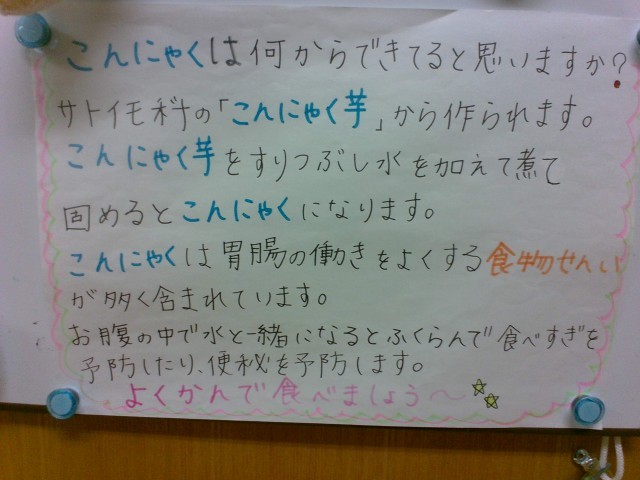 こんにゃくは何からできてると思いますか?
サトイモ科の「こんにゃく芋」から作られます。
こんにゃく芋をすりつぶし水を加えて煮て
固めるとこんにゃくになります。
こんにゃくは胃腸の働きをよくする食物せんい
が多く含まれています。
お腹の中で水と一緒になるとふくらんで食べすぎを
予防したり、便秘を予防します。
よくかんで食べましょう〜